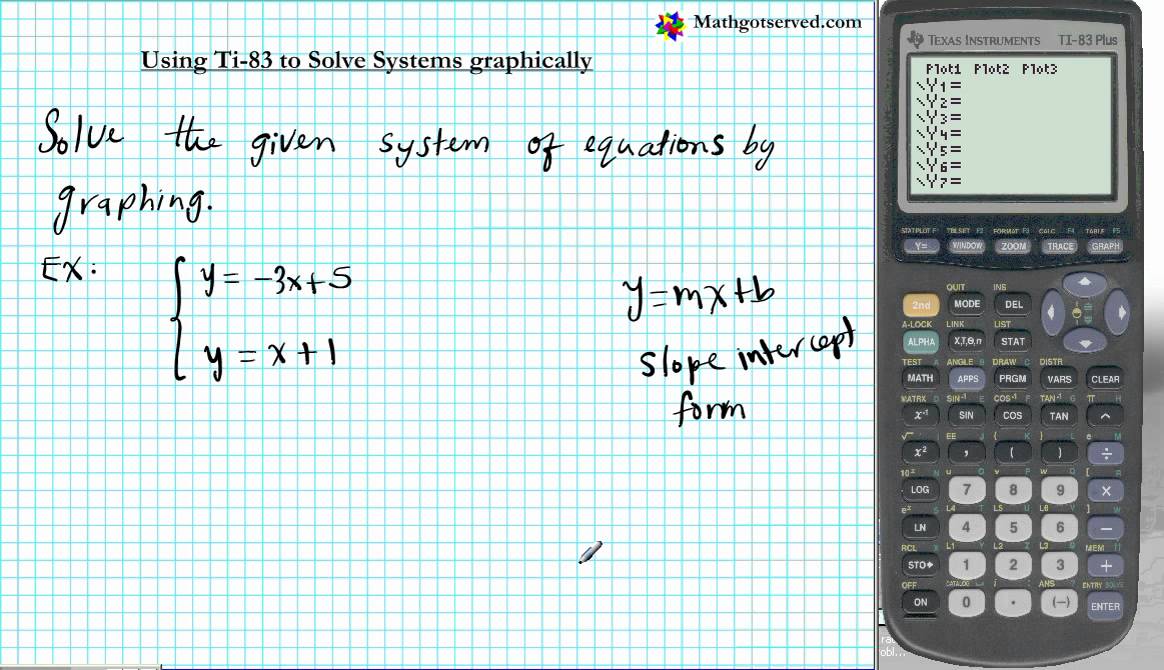 Mathgotserved.com
Using Ti-83 to Solve Systems graphically
Solve the given system of equations by
graphing.
EX:
y = -3x+5
y = x+1
y=mx+b
slope intercept
form
TEXAS INSTRUMENTS TI-83 Plus
Plot1 Plot2 Plot3
\Y1=
\Y2=
\Y3=
\Y4=
\Y5=
\Y6=
\Y7=
STAT PLOT F1 TBLSET F2 FORMAT F3 CALC F4 TABLE F5
Y= WINDOW ZOOM TRACE GRAPH
QUIT INS
2nd MODE DEL
A-LOCK LINK LIST
ALPHA X,T,θ,n STAT
TEST A ANGLE B DRAW C DISTR
MATH APPS PRGM VARS CLEAR
MATRX D SIN⁻¹ E COS⁻¹ F TAN⁻¹ G π H
x⁻¹ SIN COS TAN ^
√ EE J { K } L e M
x² , ( ) ÷
10ˣ N u O v P w Q [ R
LOG 7 8 9 ×
eˣ S L4 T L5 U L6 V ] W
LN 4 5 6 −
RCL X L1 Y L2 Z L3 θ MEM "
STO➔ 1 2 3 +
OFF CATALOG i : ANS ? ENTRY SOLVE
ON 0 . (−) ENTER